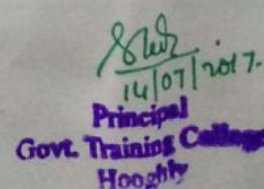 14/07/2017.
Principal
Govt. Training College
Hooghly